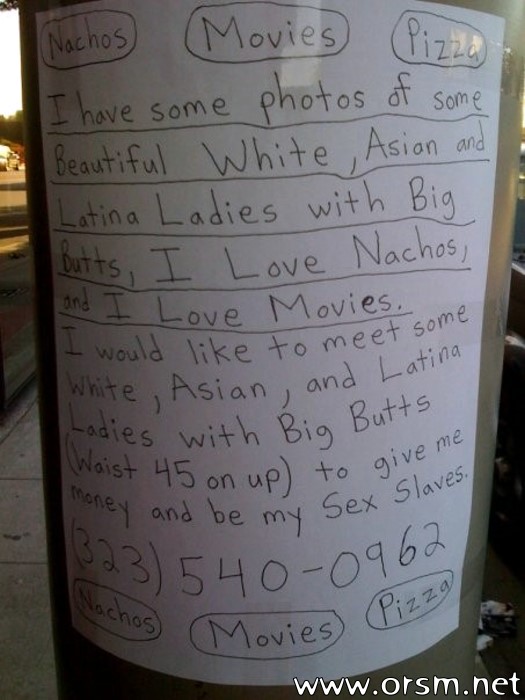 Nachos Movies Pizza
I have some photos of some
Beautiful White, Asian and
Latina Ladies with Big
Butts, I Love Nachos,
and I Love Movies.
I would like to meet some
White, Asian, and Latina
Ladies with Big Butts
(Waist 45 on up) to give me
money and be my Sex Slaves.
(323) 540-0962
Nachos Movies Pizza
www.orsm.net